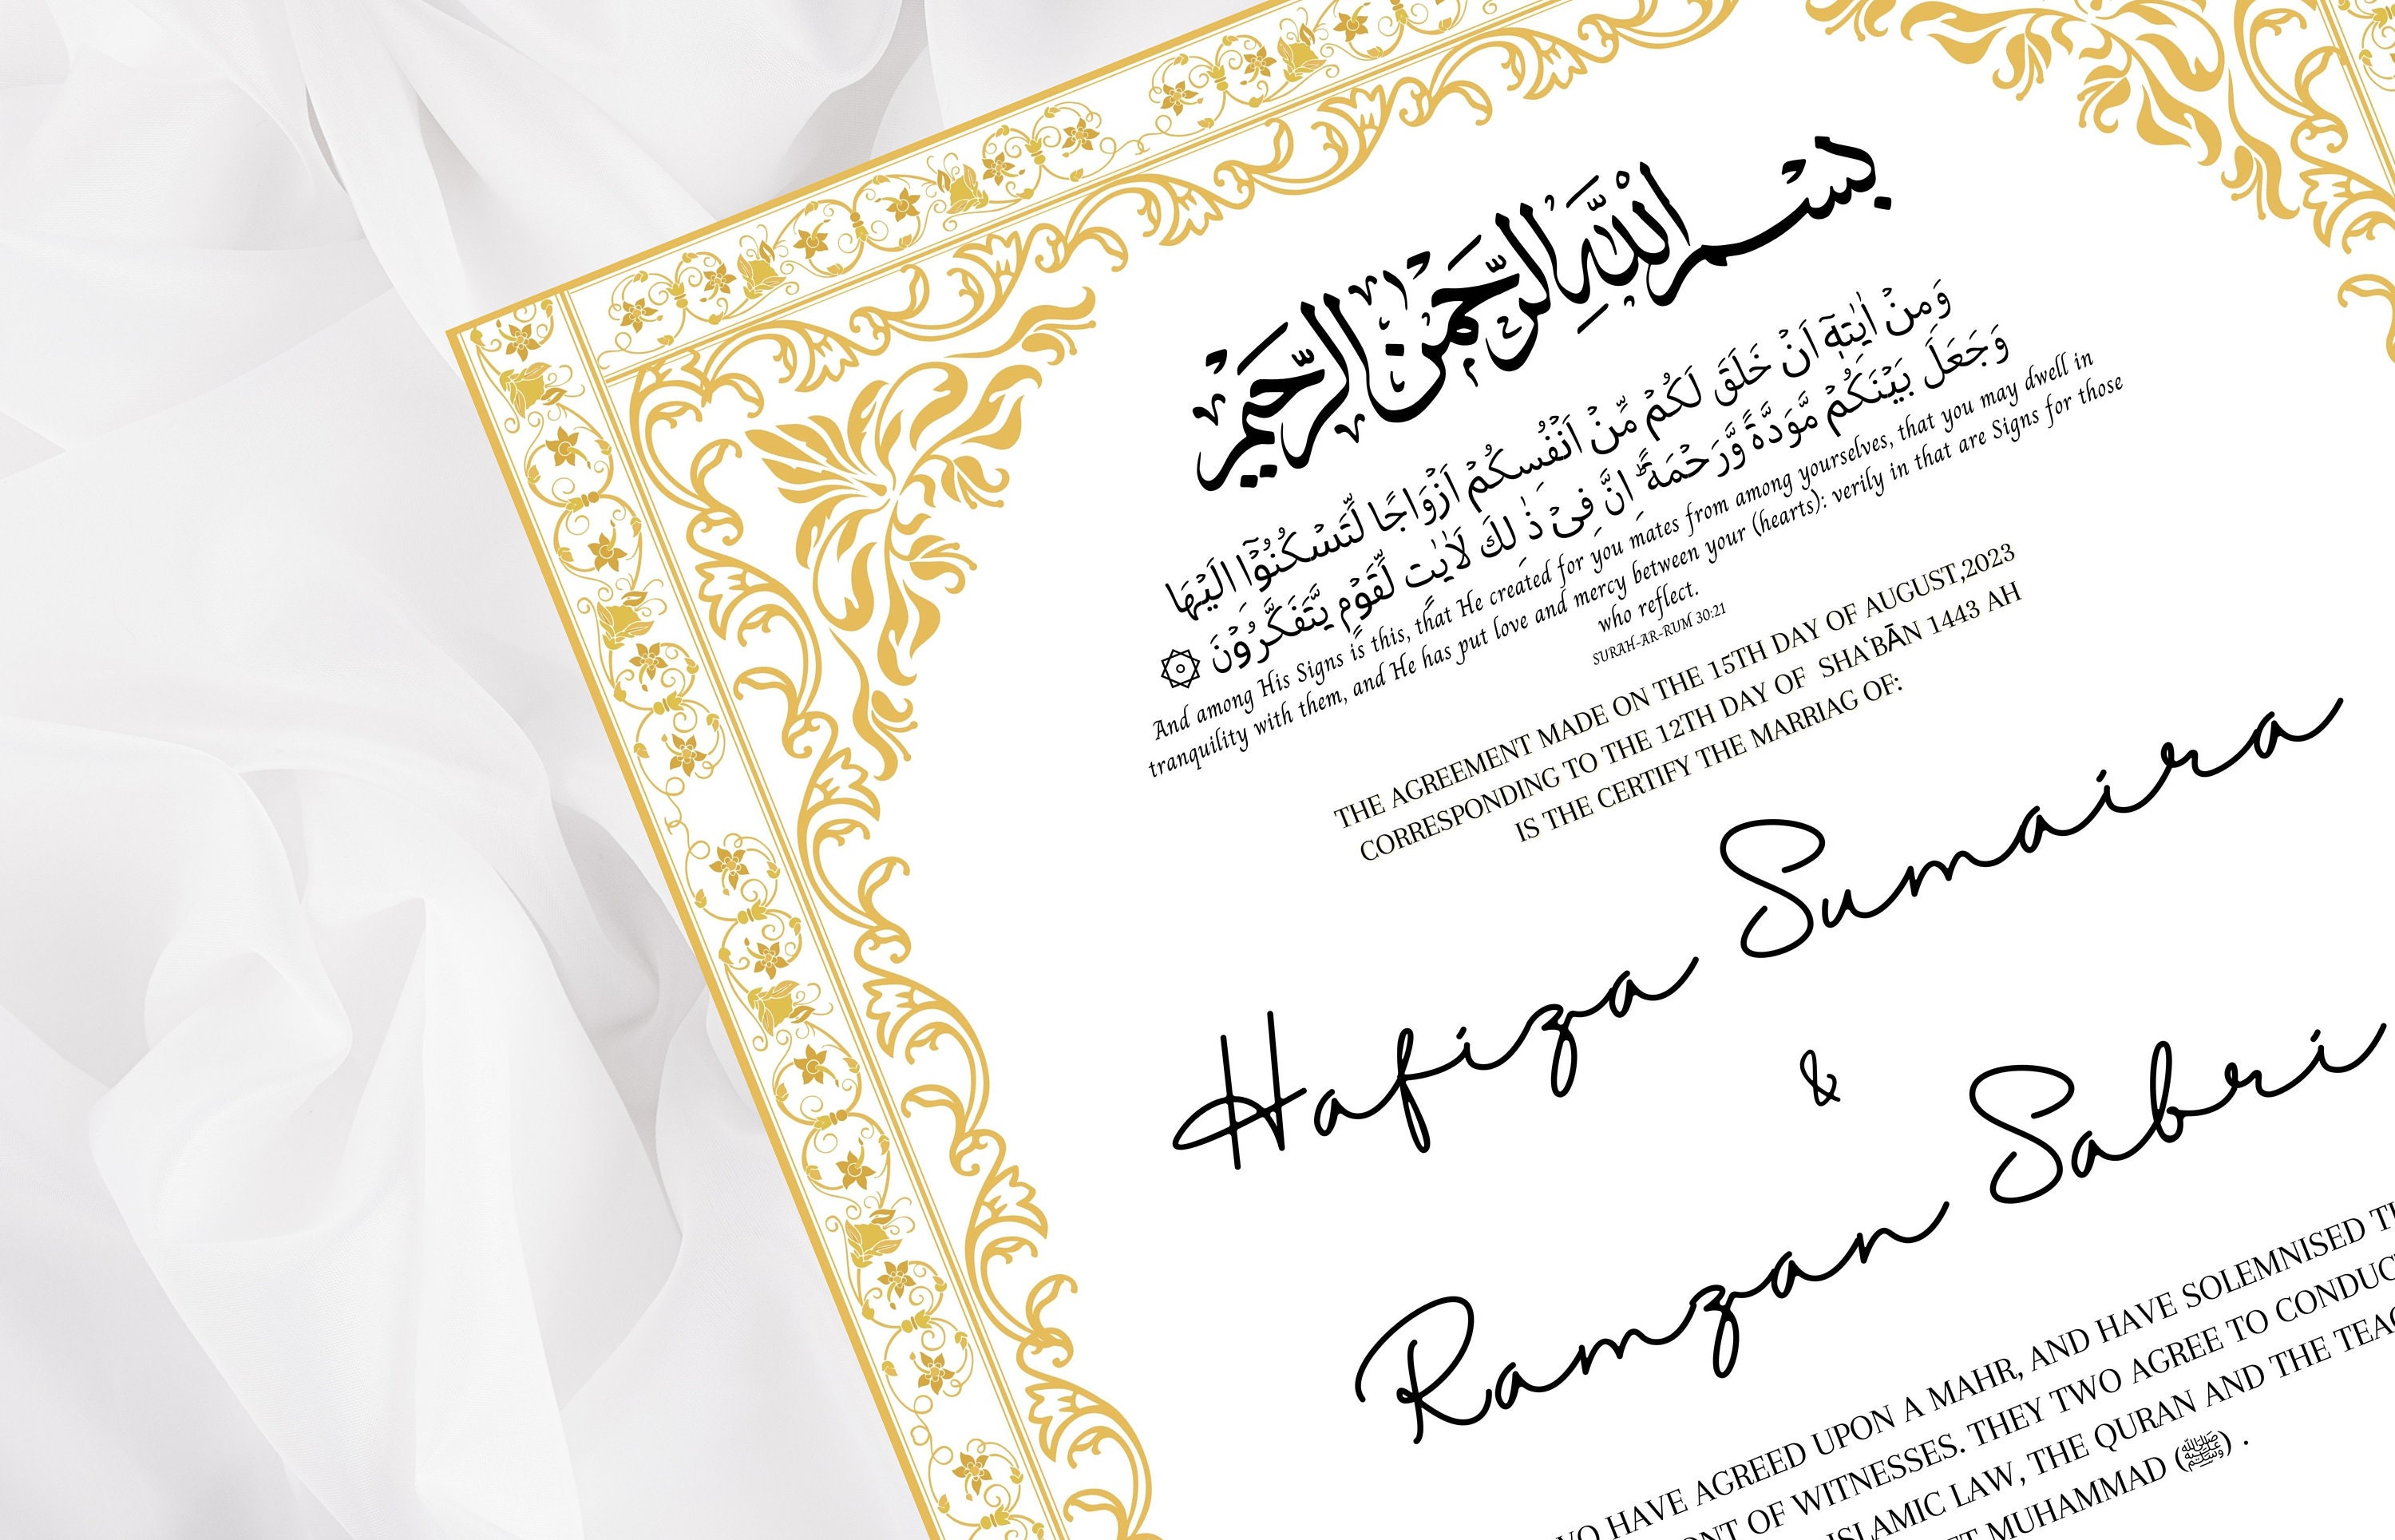 بِسْمِ اللهِ الرَّحْمٰنِ الرَّحِيْمِ
وَمِنْ اٰيٰتِهٖٓ اَنْ خَلَقَ لَكُمْ مِّنْ اَنْفُسِكُمْ اَزْوَاجًا لِّتَسْكُنُوْٓا اِلَيْهَا
وَجَعَلَ بَيْنَكُمْ مَّوَدَّةً وَّرَحْمَةً ؕ اِنَّ فِىْ ذٰ لِكَ لَاٰيٰتٍ لِّقَوْمٍ يَّتَفَكَّرُوْنَ ۞
And among His Signs is this, that He created for you mates from among yourselves, that you may dwell in
tranquility with them, and He has put love and mercy between your (hearts): verily in that are Signs for those
who reflect.
SURAH-AR-RUM 30:21
THE AGREEMENT MADE ON THE 15TH DAY OF AUGUST,2023
CORRESPONDING TO THE 12TH DAY OF SHAʿBĀN 1443 AH
IS THE CERTIFY THE MARRIAG OF:
Hafiza Sumaira
&
Ramzan Sabri
HAVE AGREED UPON A MAHR, AND HAVE SOLEMNISED
OF WITNESSES. THEY TWO AGREE TO
ISLAMIC LAW, THE QURAN AND THE
MUHAMMAD (ﷺ) .